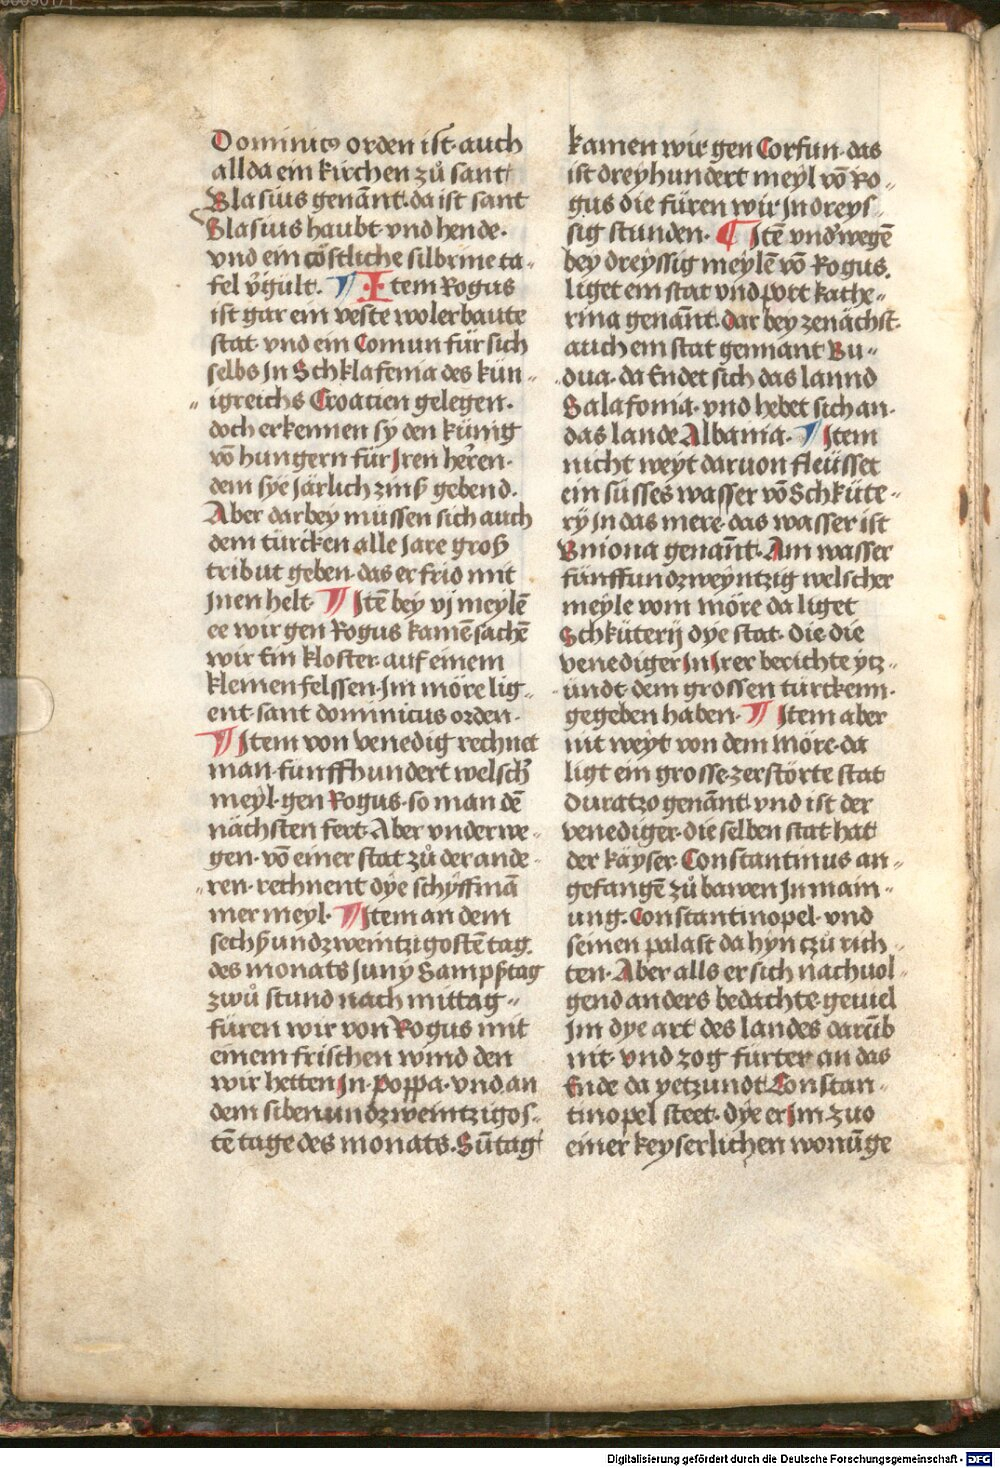 Dominicꝰ orden ist· auch
allda ein kirchen zů sant
Blasius genañt· da ist sant
Blasius haubt· vnd hende·
vnd ein cöstliche silbrine ta-
fel v̉gült· ¶ Item Rogus
ist gar ein veste wolerbaute
stat· vnd ein Comun für sich
selbs jn Schklafenia des kün-
igreichs Croacien gelegen·
doch erkennen sy den künig
vō hungern für Iren her̉en·
dem sÿe järlich zinß gebend·
Aber darbey müssen sich auch
dem türcken alle jare groß
tribut geben· das er frid mit
jnen helt· ¶ Itē bey vj meylē
ee wir gen Rogus kamē sachē
wir Ein kloster· auf einem
klemen felssen· jm möre lig-
ent· sant dominicus orden·
¶ Item von venedig rechnet
man· fünffhundert welsch̉
meyl· gen Rogus· so man dē
nächsten fert· Aber vnderwe-
gen· vō einer stat zů der ande-
ren· rechnent dÿe schÿffmā
mer meyl· ¶ Item an dem
sechßundzweintzigostē tag
des monats Juny Sampßtag
zwů stund nach mittag
füren wir von Rogus mit
einem frischen wind den
wir hetten jn poppa· vnd an
dem sibenundzweintzigos-
tē tage des monats· Sūtag
kamen wir gen Corfun· das
ist dreyhundert meyl vō Ro-
gus die füren wir jn dreys-
sig stunden· ¶ Itē vnd̉wegē
bey dreyssig meylē vō Rogus·
liget ein stat vnd port kathe-
rina genañt· dar bey zenächst·
auch ein stat gennant Bu-
dua· da Endet sich das lannd
Salafonia· vnd hebet sich an·
das lande Albania· ¶ Item
nicht weyt daruon fleüsset
ein süsses wasser vō Schküte-
rÿ jn das mere· das wasser ist
Bniona genañt· Am wasser
fünffundzweyntzig welscher
meyle vom möre da liget
Schküterij dÿe stat· die die
venediger jn Irer berichte ÿtz-
undt· dem grossen türckenn·
gegeben haben· ¶ Item aber
nit weyt von dem möre· da
ligt ein grosse· zerstörte stat
Duratzo genañt· vnd ist der
venediger· die selben stat hat
der käyser Constantinus an-
gefangē zů bawen Jn main-
ung· Constantinopel· vnd
seinen palast da hÿn tzů rich-
ten· Aber alls er sich nachuol-
gend anders bedachte· geuiel
jm dye art des landes darūb
nit· vnd zog fürter an das
Ende da yetzundt Constan-
tinopel steet· dÿe er Im zuo
einer keyserlichen wonūge
Digitalisierung gefördert durch die Deutsche Forschungsgemeinschaft - DFG